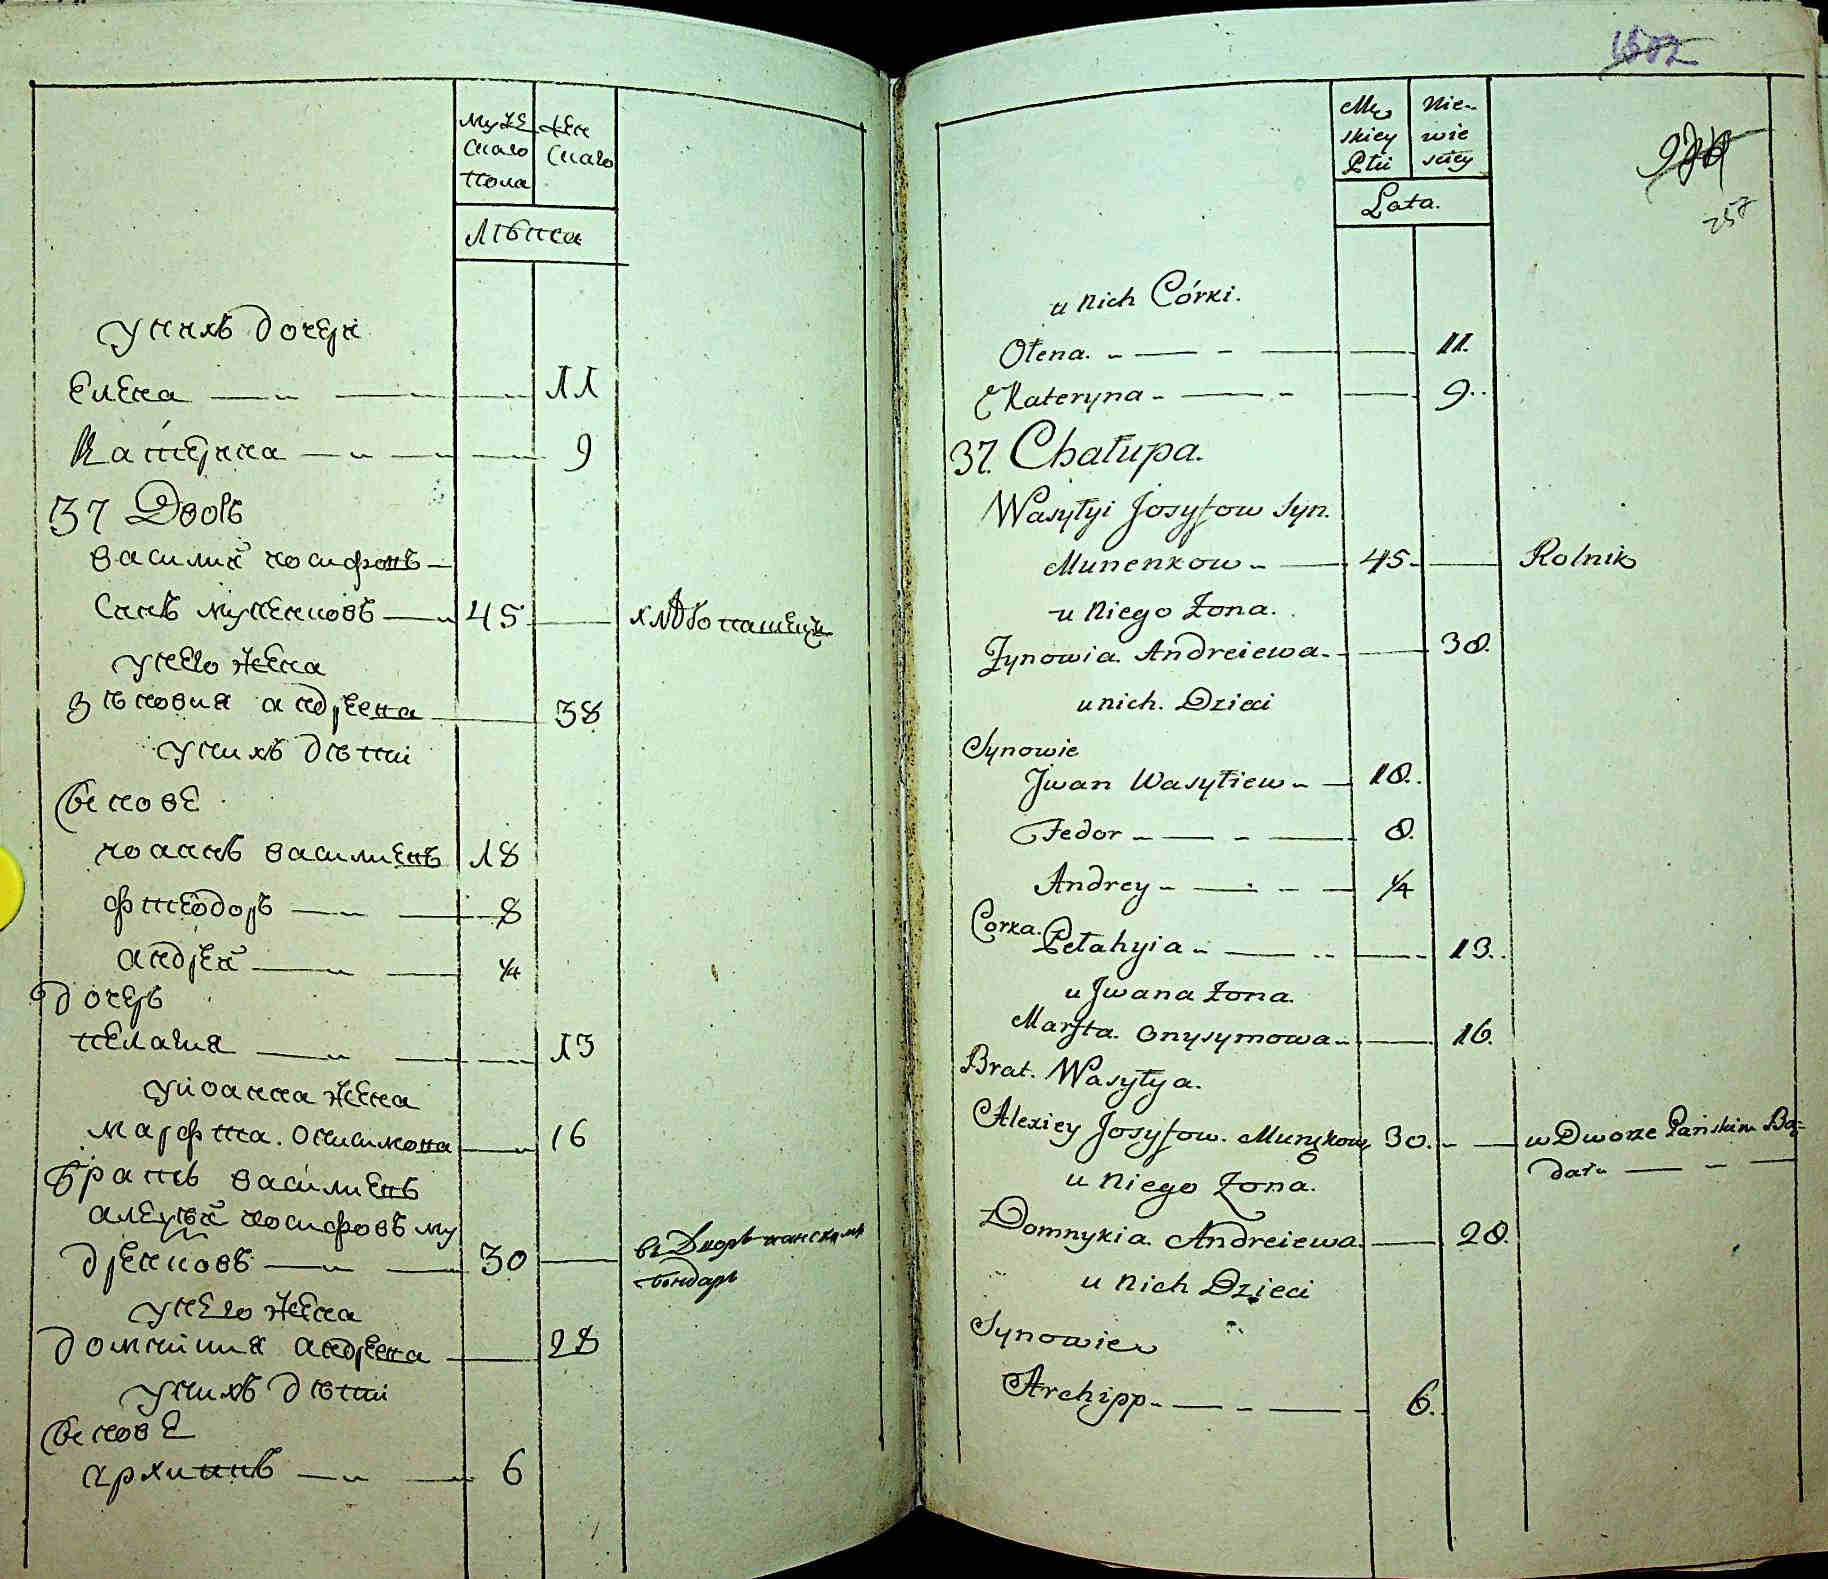 мужескаго пола
женскаго
лѣта
у нихъ дочери
Елена 11
Катерина 9
37 Дворъ
василий иосифовъ
сынъ муненковъ 45 хлѣбопашецъ
у него жена
зѣновия андреева 38
у нихъ дѣти
сынове
иоаннъ василиевъ 18
фтеодоръ 8
андрей 1/4
дочеръ
пелагия 13
у иоанна жена
марфта онисимова 16
братъ василиевъ
алексий иосифовъ му
дренковъ 30 въ Дворѣ панскомъ
бондаръ
у него жена
домникия андреева 28
у нихъ дѣти
сынове
архиппъ 6
1502
Męskiey Płci
Niewieściey
Lata.
257
u nich Córki.
Ołena. 11.
Kateryna 9.
37. Chałupa.
Wasyłyi Josyfow Syn.
Munenkow 45 Rolnik
u Niego Żona.
Zynowia. Andreiewa. 38.
u nich. Dzieci
Synowie
Jwan Wasyłiew 18.
Fedor 8.
Andrey 1/4
Corka. Pełahyia 13.
u Jwana Żona.
Marfta. Onysymowa 16.
Brat. Wasyłya.
Alexiey Josyfow. 30. w Dworze Pańskim Bę-
u Niego Żona.
Domnykia. Andreiewa. 28.
u Nich Dzieci
Synowie
Archipp 6.